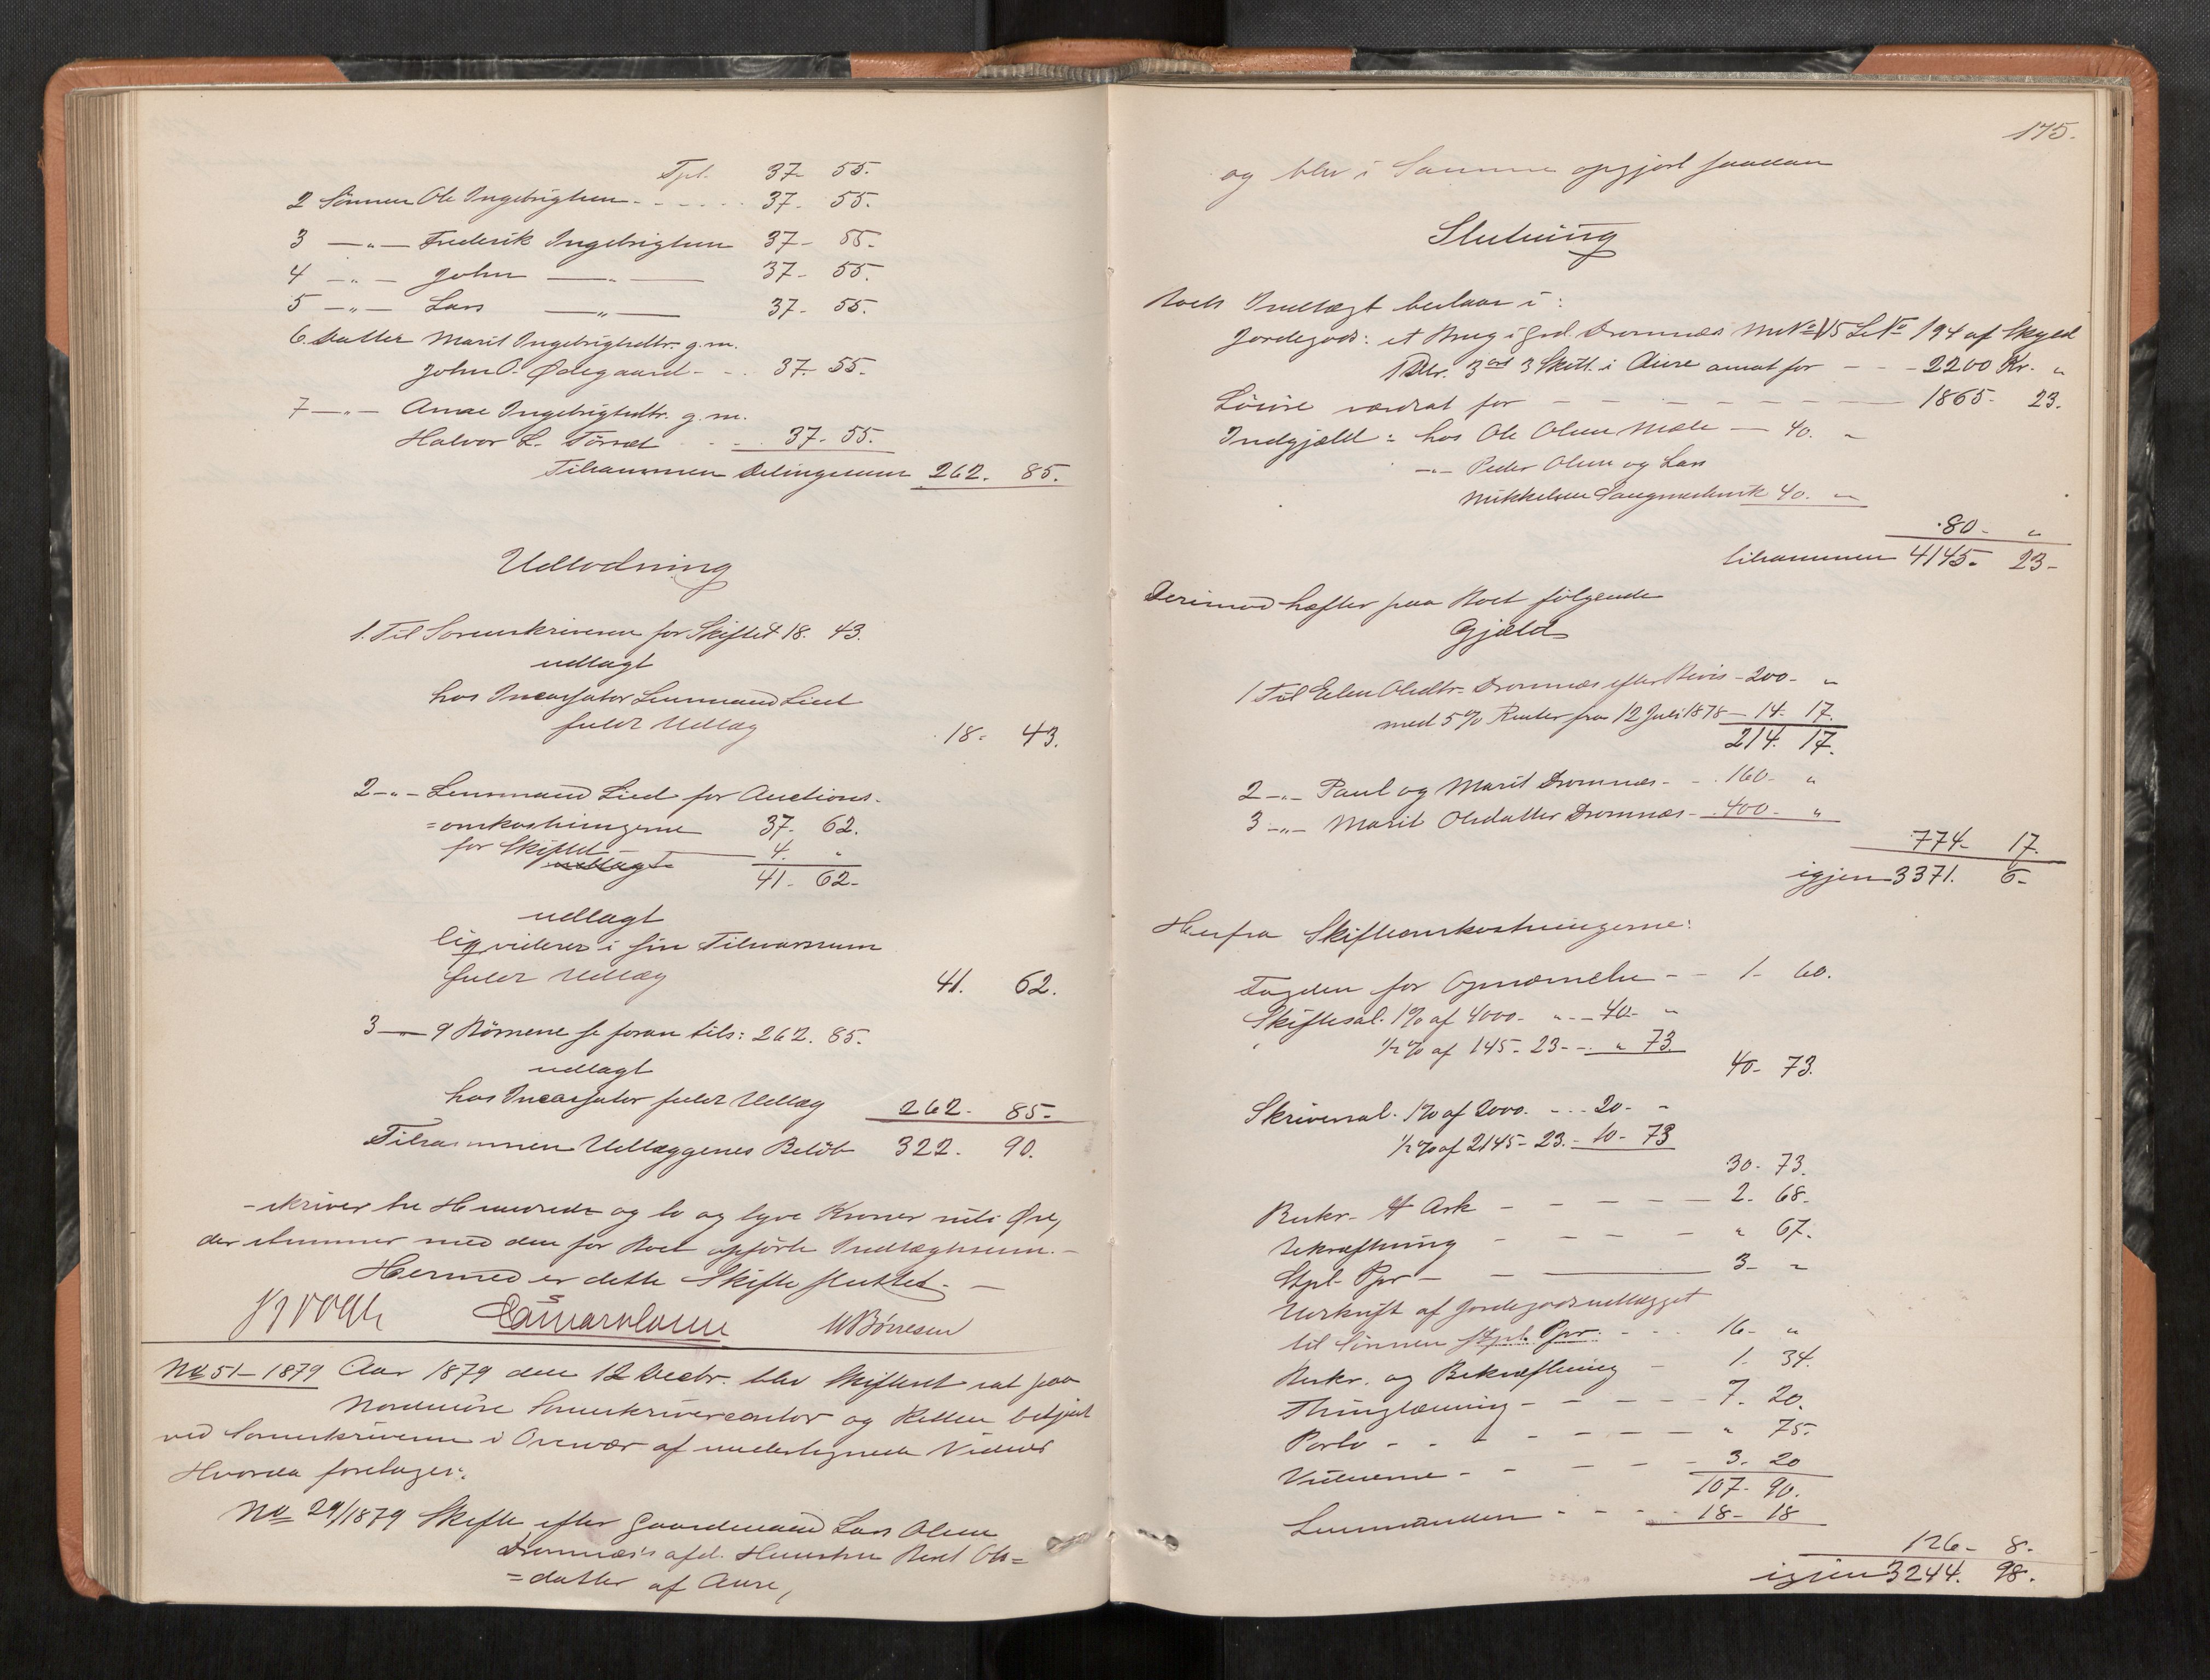 Tpt. 37- 55.
2 Sønnen Ole Ingebrigtsen - - - - - 37. 55.
3 —"— Frederik Ingebrigtsen 37- 55-
4 —"— John —"— 37- 55.
5 —"— Lars —"— 37- 55.
6. Datter Marit Ingebrigtsdtr. g.m.
John O. Ødegaard - - . 37. 55.
7 —"— Anne Ingebrigtsdtr. g.m.
Halvor L. Tørset - - . 37. 55.
Tilsammen Delingssum 262. 85.
Udlodning
1. Til Sorenskriveren for Skiftet 18. 43.
udlagt
hos Incassator Lensmand Lied
fuldt Udlæg 18. 43.
2 -"- Lensmand Lied for Auctions-
=omkostningerne 37- 62.
for Skiftet — 4. "
udlagt 41- 62-
udlagt
liqviderer i sin Tilsvarssum
fuldt Udlæg 41. 62.
3 —"— 9 Børnene se foran tils: 262. 85.
udlagt
hos Incassator fuldt Udlæg 262. 85-
Tilsammen Udlæggenes Beløb 322. 90.
-skriver tre Hundrede og to og tyve Kroner niti Øre,
der stemmer med den for Boet opførte Indtægtssum. -
Hermed er dette Skifte sluttet. —
WBörresen
No 51-1879 Aar 1879 den 12 Decbr. blev Skifteret sat paa
Nordmøre Sorenskrivercontor og Retten betjent
ved Sorenskriveren i Overvær af undertegnede Vidner
Hvorda foretages:
No 29/1879 Skifte efter Gaardmand Lars Olsen
Dromnæs's afd. Hustru Beret Ols=
=datter af Aure,
175.
og blev i Samme opgjort saadan
Slutning
Boets Indtægt bestaar i:
Jordegods: et Brug i Grd. Dromnæs MNo 45 LNo 194 af Skyld
1 Dlr. 3 ort 3 Skill. i Aure antat for - - - 2200 Kr. "
Løsøre vurdrat for - - - - - - 1865- 23.
Indgjæld: hos Ole Olsen Mæle — 40. "
—"— Peder Olsen og Lars
Mikkelsen 40. "
80- "
tilsammen 4145- 23-
Derimod hæfter paa Boet følgende
Gjæld
1 Til Elen Olsdtr. Dromnæs efter Bevis - 200- "
med 5% Renter fra 12 Juli 1878 — 14- 17.
214. 17.
2 -"- Paul og Marit Dromnæs - - . 160- "
3 -"- Marit Olsdatter Dromnæs - 400- "
774- 17.
igjen 3371. 6-
Herfra Skifteomkostningerne:
Fogden for Opnævnelse - - 1- 60.
Skiftesal. 1% af 4000. " - - 40- "
½% af 145- 23 - - " 73
40- 73.
Skriversal. 1% af 2000. - . . 20- "
½% af 2145- 23. - 10- 73
30- 73.
Beskr. 4 Ark - - - - - 2. 68-
Bekræftning - - - - - " 67.
Stpl. Ppr - - — 3- "
Udskrift af Jordegodsudlægget
til Sønnen Stpl. Ppr. - - . 16- "
Beskr. og Bekræftning - 1. 34.
Thinglæsning - - - - - 7. 20.
Porto - - - - - - - " 75.
Vidnerne - - - - - 3. 20
107. 90.
Lensmanden - - - - 18- 18
126- 8-
igjen 3244. 98.